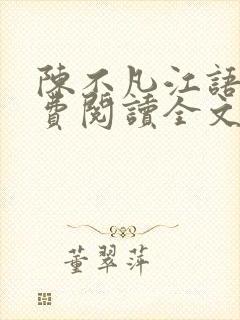 陳不凡江語
費閱讀全文
董翠萍